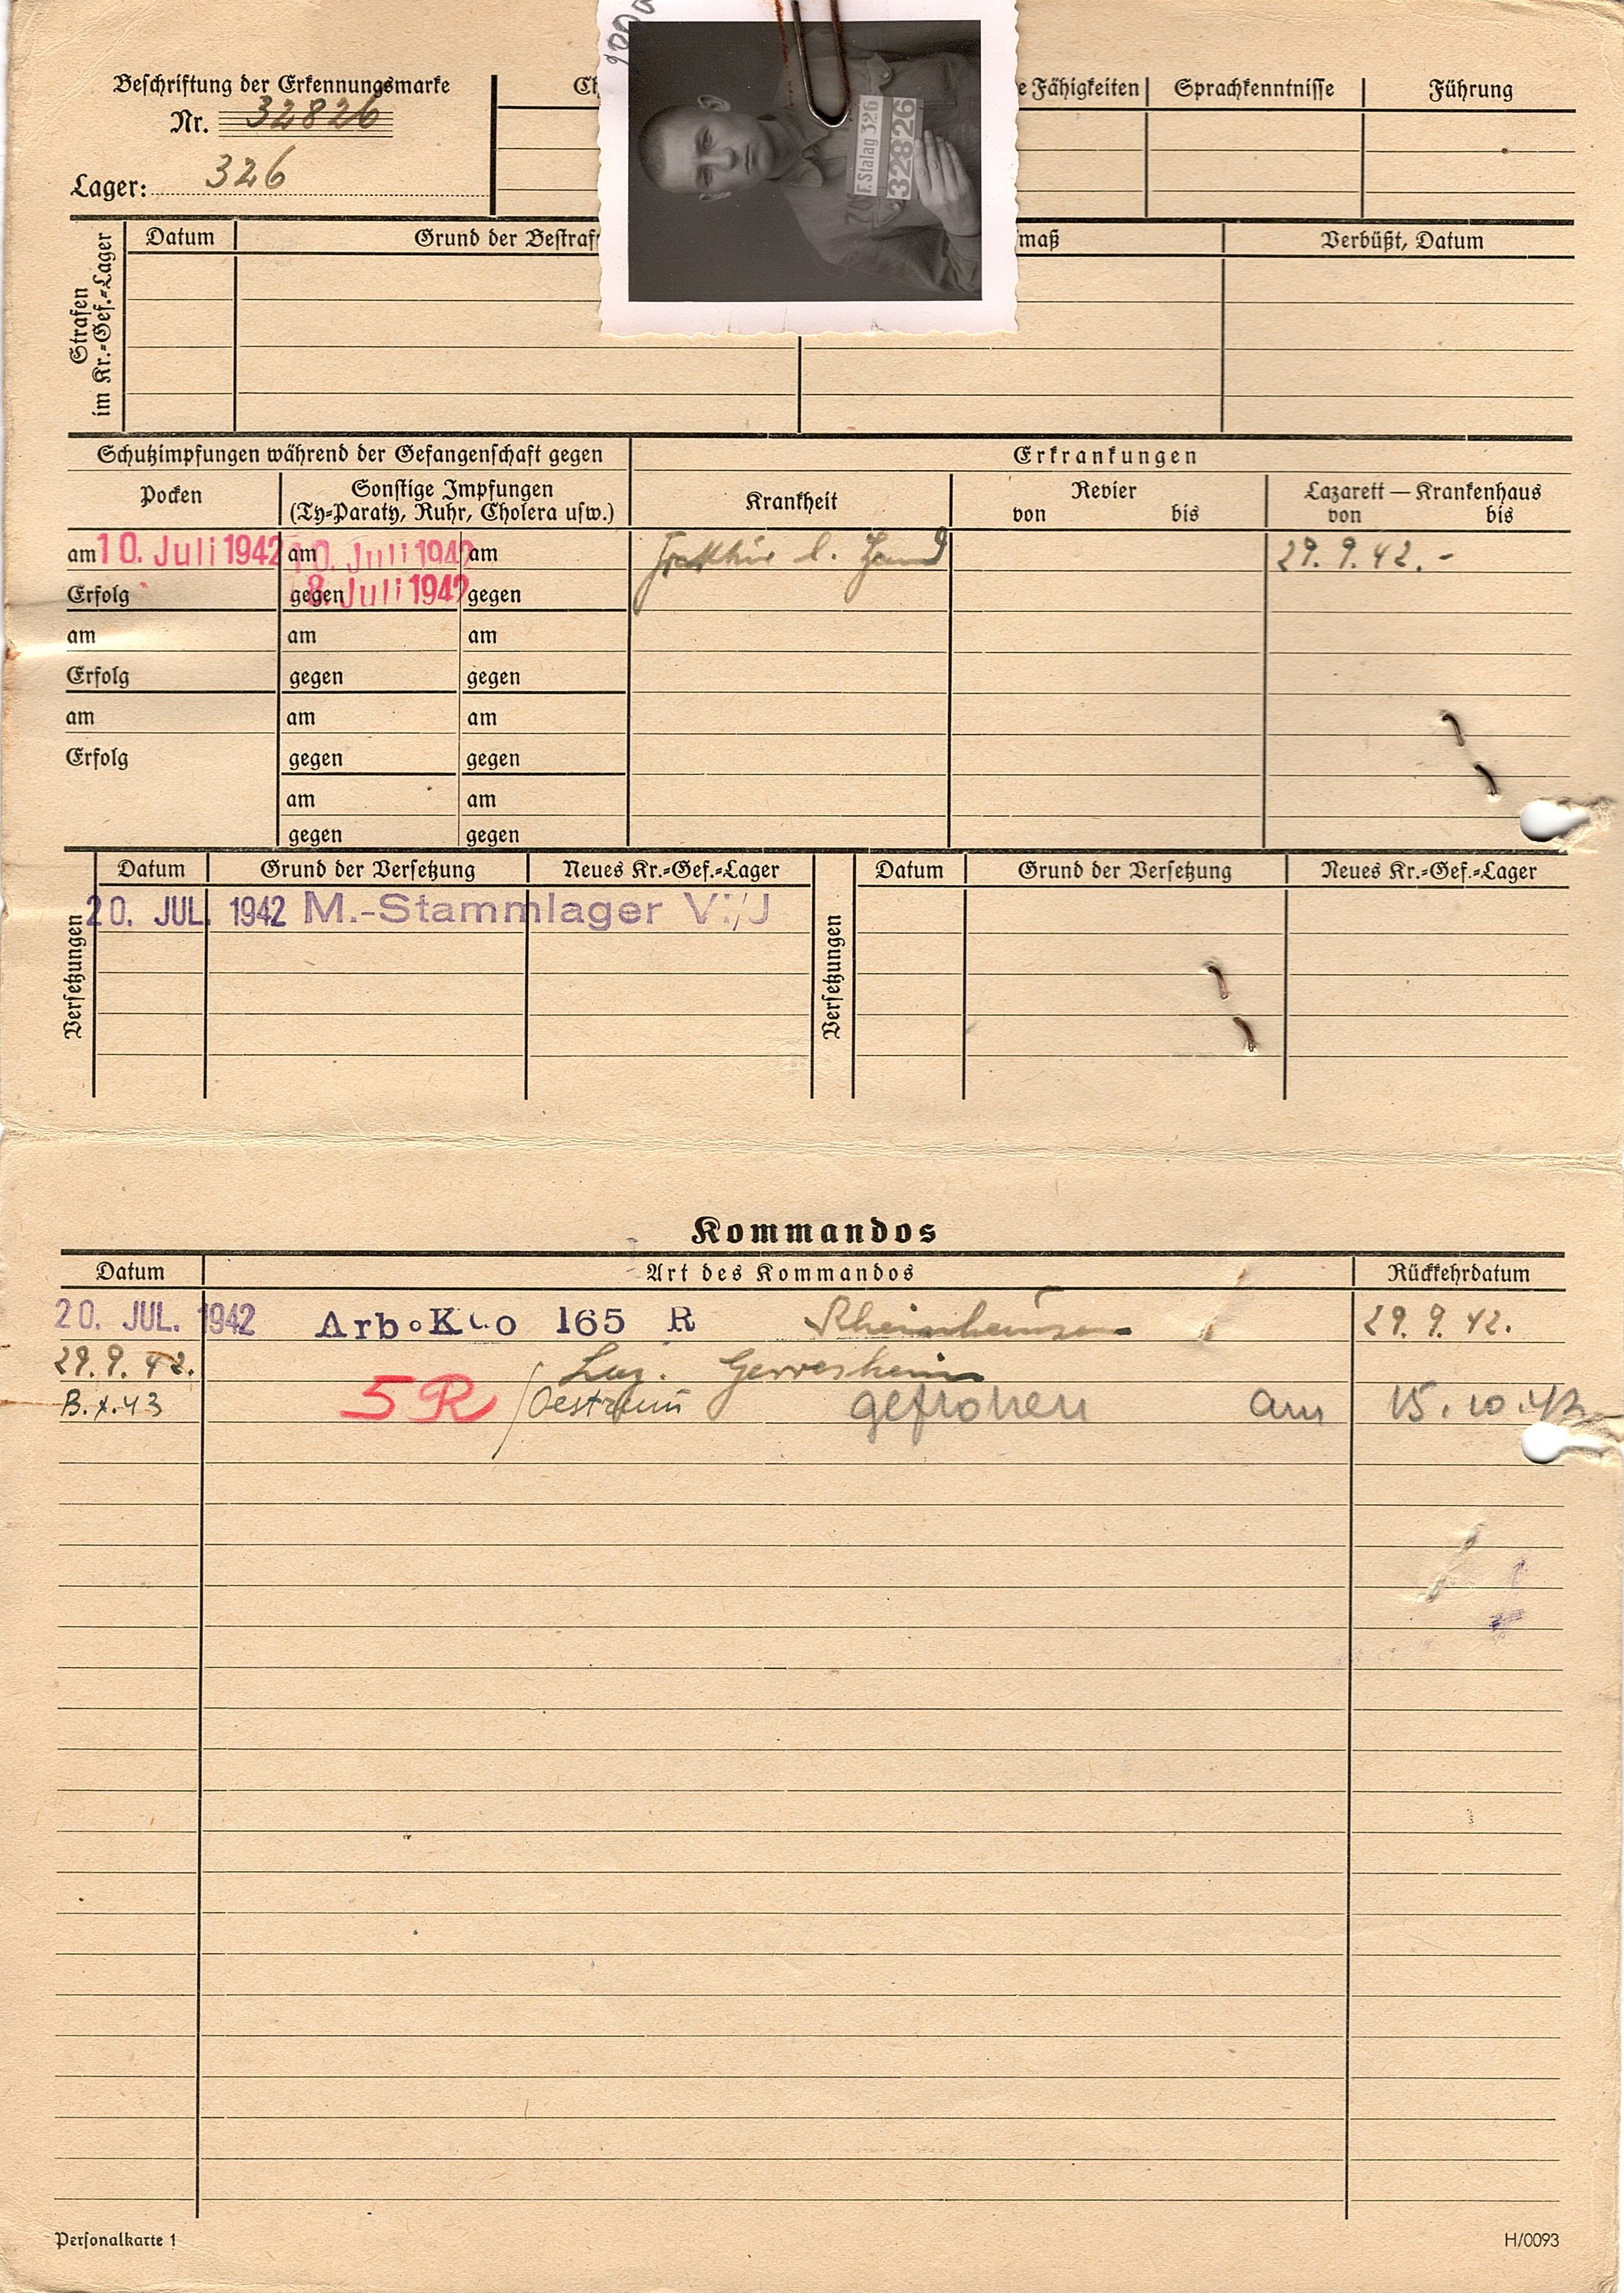 Beschriftung der Erkennungsmarke
Nr. 32826
Lager: 326
e Fähigkeiten
Sprachkenntnisse
Führung
F. Stalag 326
32826
Strafen
im Kr.-Gef.-Lager
Datum
Grund der Bestraf
maß
Verbüßt, Datum
Schutzimpfungen während der Gefangenschaft gegen
Erkrankungen
Pocken
Sonstige Impfungen
(Ty-Paraty, Ruhr, Cholera usw.)
Krankheit
Revier
von bis
Lazarett — Krankenhaus
von bis
am 10. Juli 1942 am 10. Juli 1942 am
l. Hand 29. 9. 42. -
Erfolg gegen 8. Juli 1942 gegen
am am am
Erfolg gegen gegen
am am am
Erfolg gegen gegen
am am
gegen gegen
Versetzungen
Datum Grund der Versetzung Neues Kr.-Gef.-Lager
20. JUL. 1942 M.-Stammlager VI/J
Versetzungen
Datum Grund der Versetzung Neues Kr.-Gef.-Lager
Kommandos
Datum Art des Kommandos Rückkehrdatum
20. JUL. 1942 Arb.Kdo 165 R Rheinhausen 29. 9. 42.
29. 9. 42. Laz. Gerresheim
5R Oestrum geflohen am 15. 10. 43
Personalkarte 1
H/0093